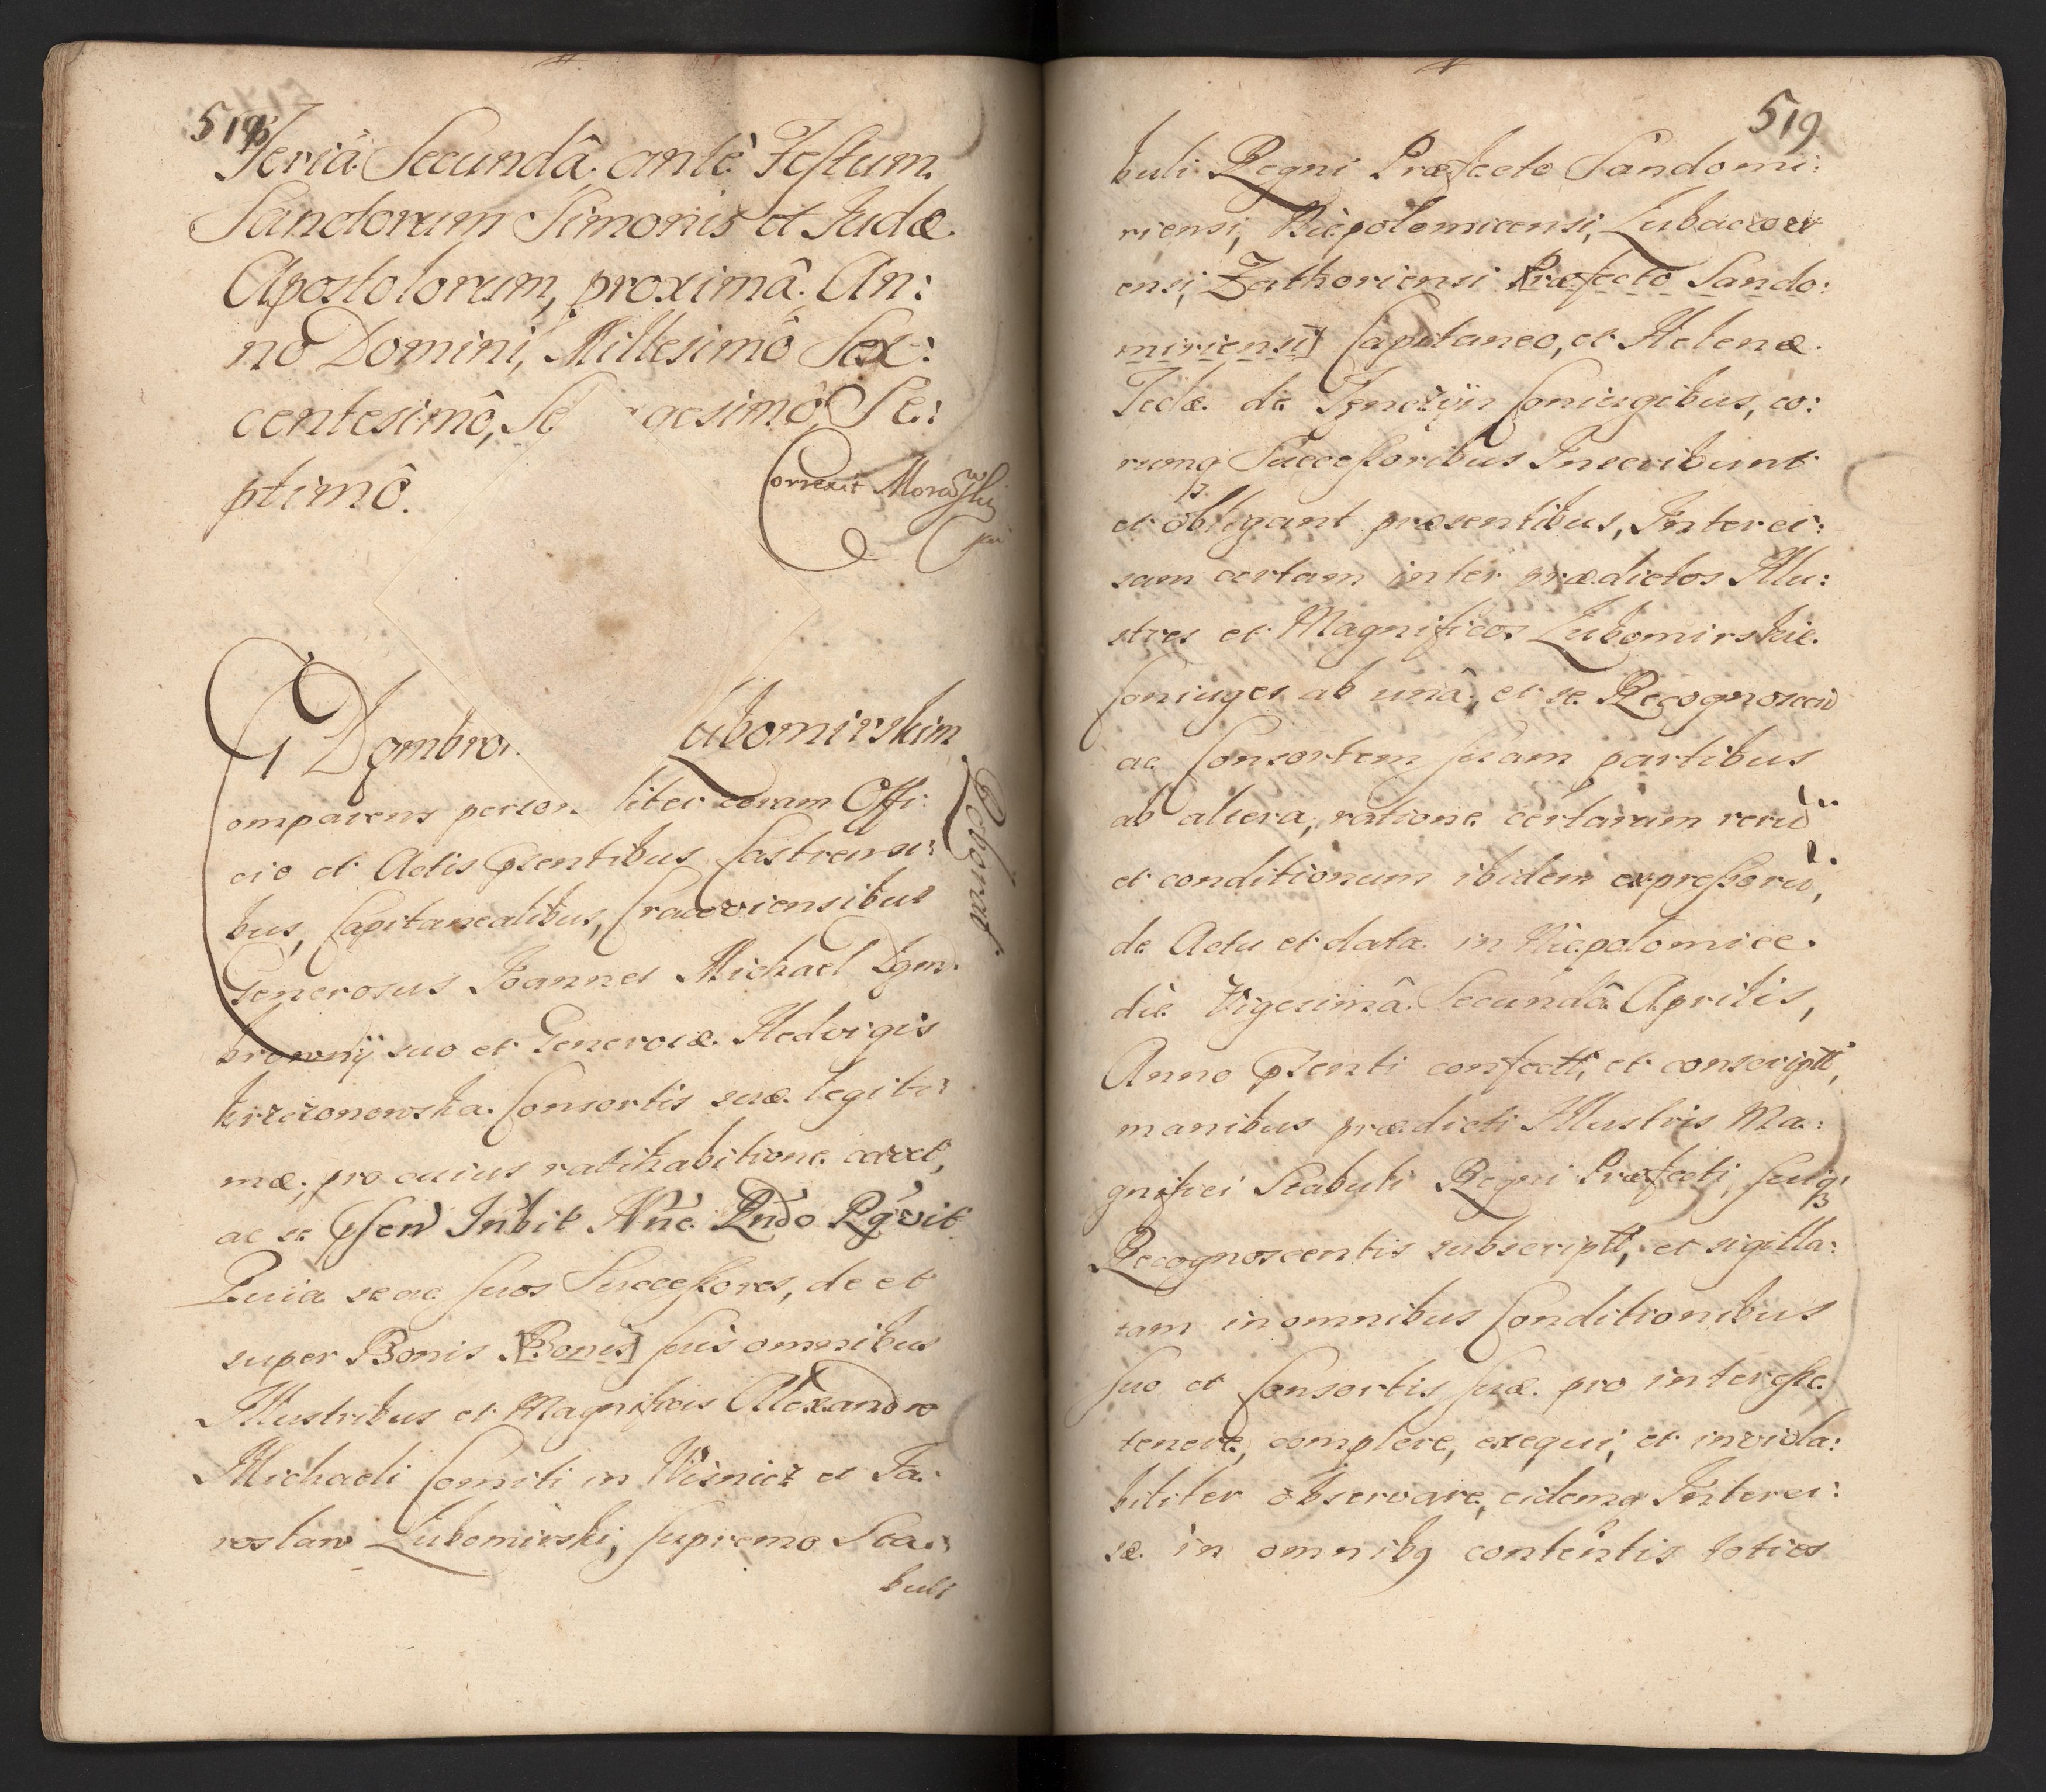 518
Feriâ Secundâ ante Festum
Sanctorum Simonis et Judæ
Apostolorum, proximâ An:
nô Domini, Millesimô Sex:
centesimô, Se gesimô Se:
ptimô.
Correxit
Dąmbro Lubomirskim
Roborat
omparens person liter coram Offi:
cio et Actis Pñtibus Castrensi:
bus, Capitanealibus, Cracoviensibus
Generosus Joannes Michael Dąm:
browskij suo et Generosæ Hedvigis
Consortis suæ legiti:
mæ, pro cuius ratihabitione cavet,
ac se
Quia se ac suos Successores, de et
super Bonis [Bonis] suis omnibus
Illustribus et Magnificis Alexandro
Michaeli Comiti in Wisnicz et Ja:
roslaw Lubomirski, supremo Sta:
buli
519
buli Regni Præfecto Sandomi:
riensi, Niepolomicensi, Lubaczov
ensi, Zathoriensi Præfecto Sando:
miriensi] Capitaneo, et Helenæ
Teclæ de Tęnczyn Coniugibus, eo:
rumq Successoribus Inscribunt
et obligant præsentibus, Interci:
sam certam inter prædictos Illu:
stres et Magnificos Lubomirskie
Coniuges ab unâ, et se Recognoscen
ac Consortem suam partibus
ab altera, ratione certarum reru
et conditionum ibidem expressoru,
de Actu et data in Niepolomice
die Vigesimâ Secundâ Aprilis,
Anno Pñsenti confectt, et conscriptt,
manibus prædicti Illustris Ma:
gnifici Stabuli Regni Præfecti, suiq
Recognoscentis subscriptt, et sigilla:
tam in omnibus Conditionibus
suo et Consortis suæ pro interesse
tenere, complere, exequi, et inviola:
biliter observare, eidemq Interci:
sæ in omnibq contentis toties